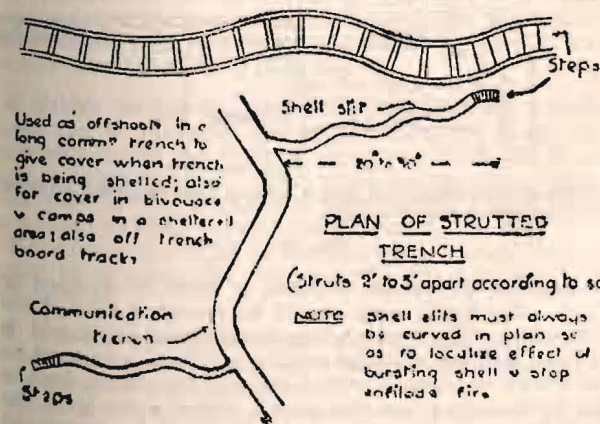 Steps
Shell slit
Used as offshoots in a
long commn trench to
give cover when trench
is being shelled; also
for cover in bivouacs
& camps in a sheltered
area; also off trench
board tracks
PLAN OF STRUTTED
TRENCH
(Struts 2' to 3' apart according to
NOTE Shell slits must always
be curved in plan so
as to localize effect of
bursting shell & stop
enfilade fire
Communication
trench
Steps